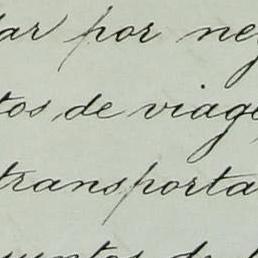 dar por neg
tos de viage
transporta